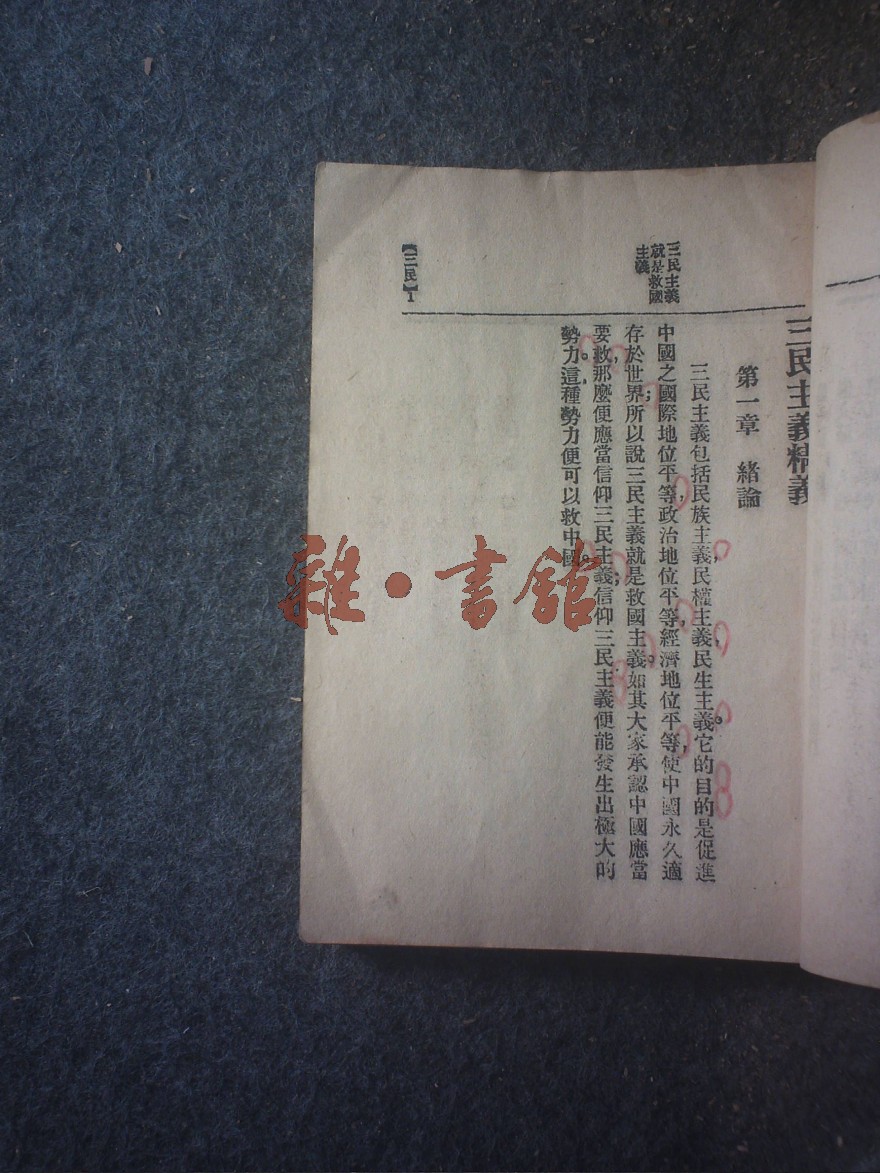 三民主義精義
第一章　緒論
三民主義
就是救國
主義
三民主義包括民族主義，民權主義，民生主義。它的目的是促進
中國之國際地位平等，政治地位平等，經濟地位平等，使中國永久適
存於世界；所以說三民主義就是救國主義。如其大家承認中國應當
要救，那麼便應當信仰三民主義；信仰三民主義便能發生出極大的
勢力。這種勢力便可以救中國。
【三民】1
雜·書館